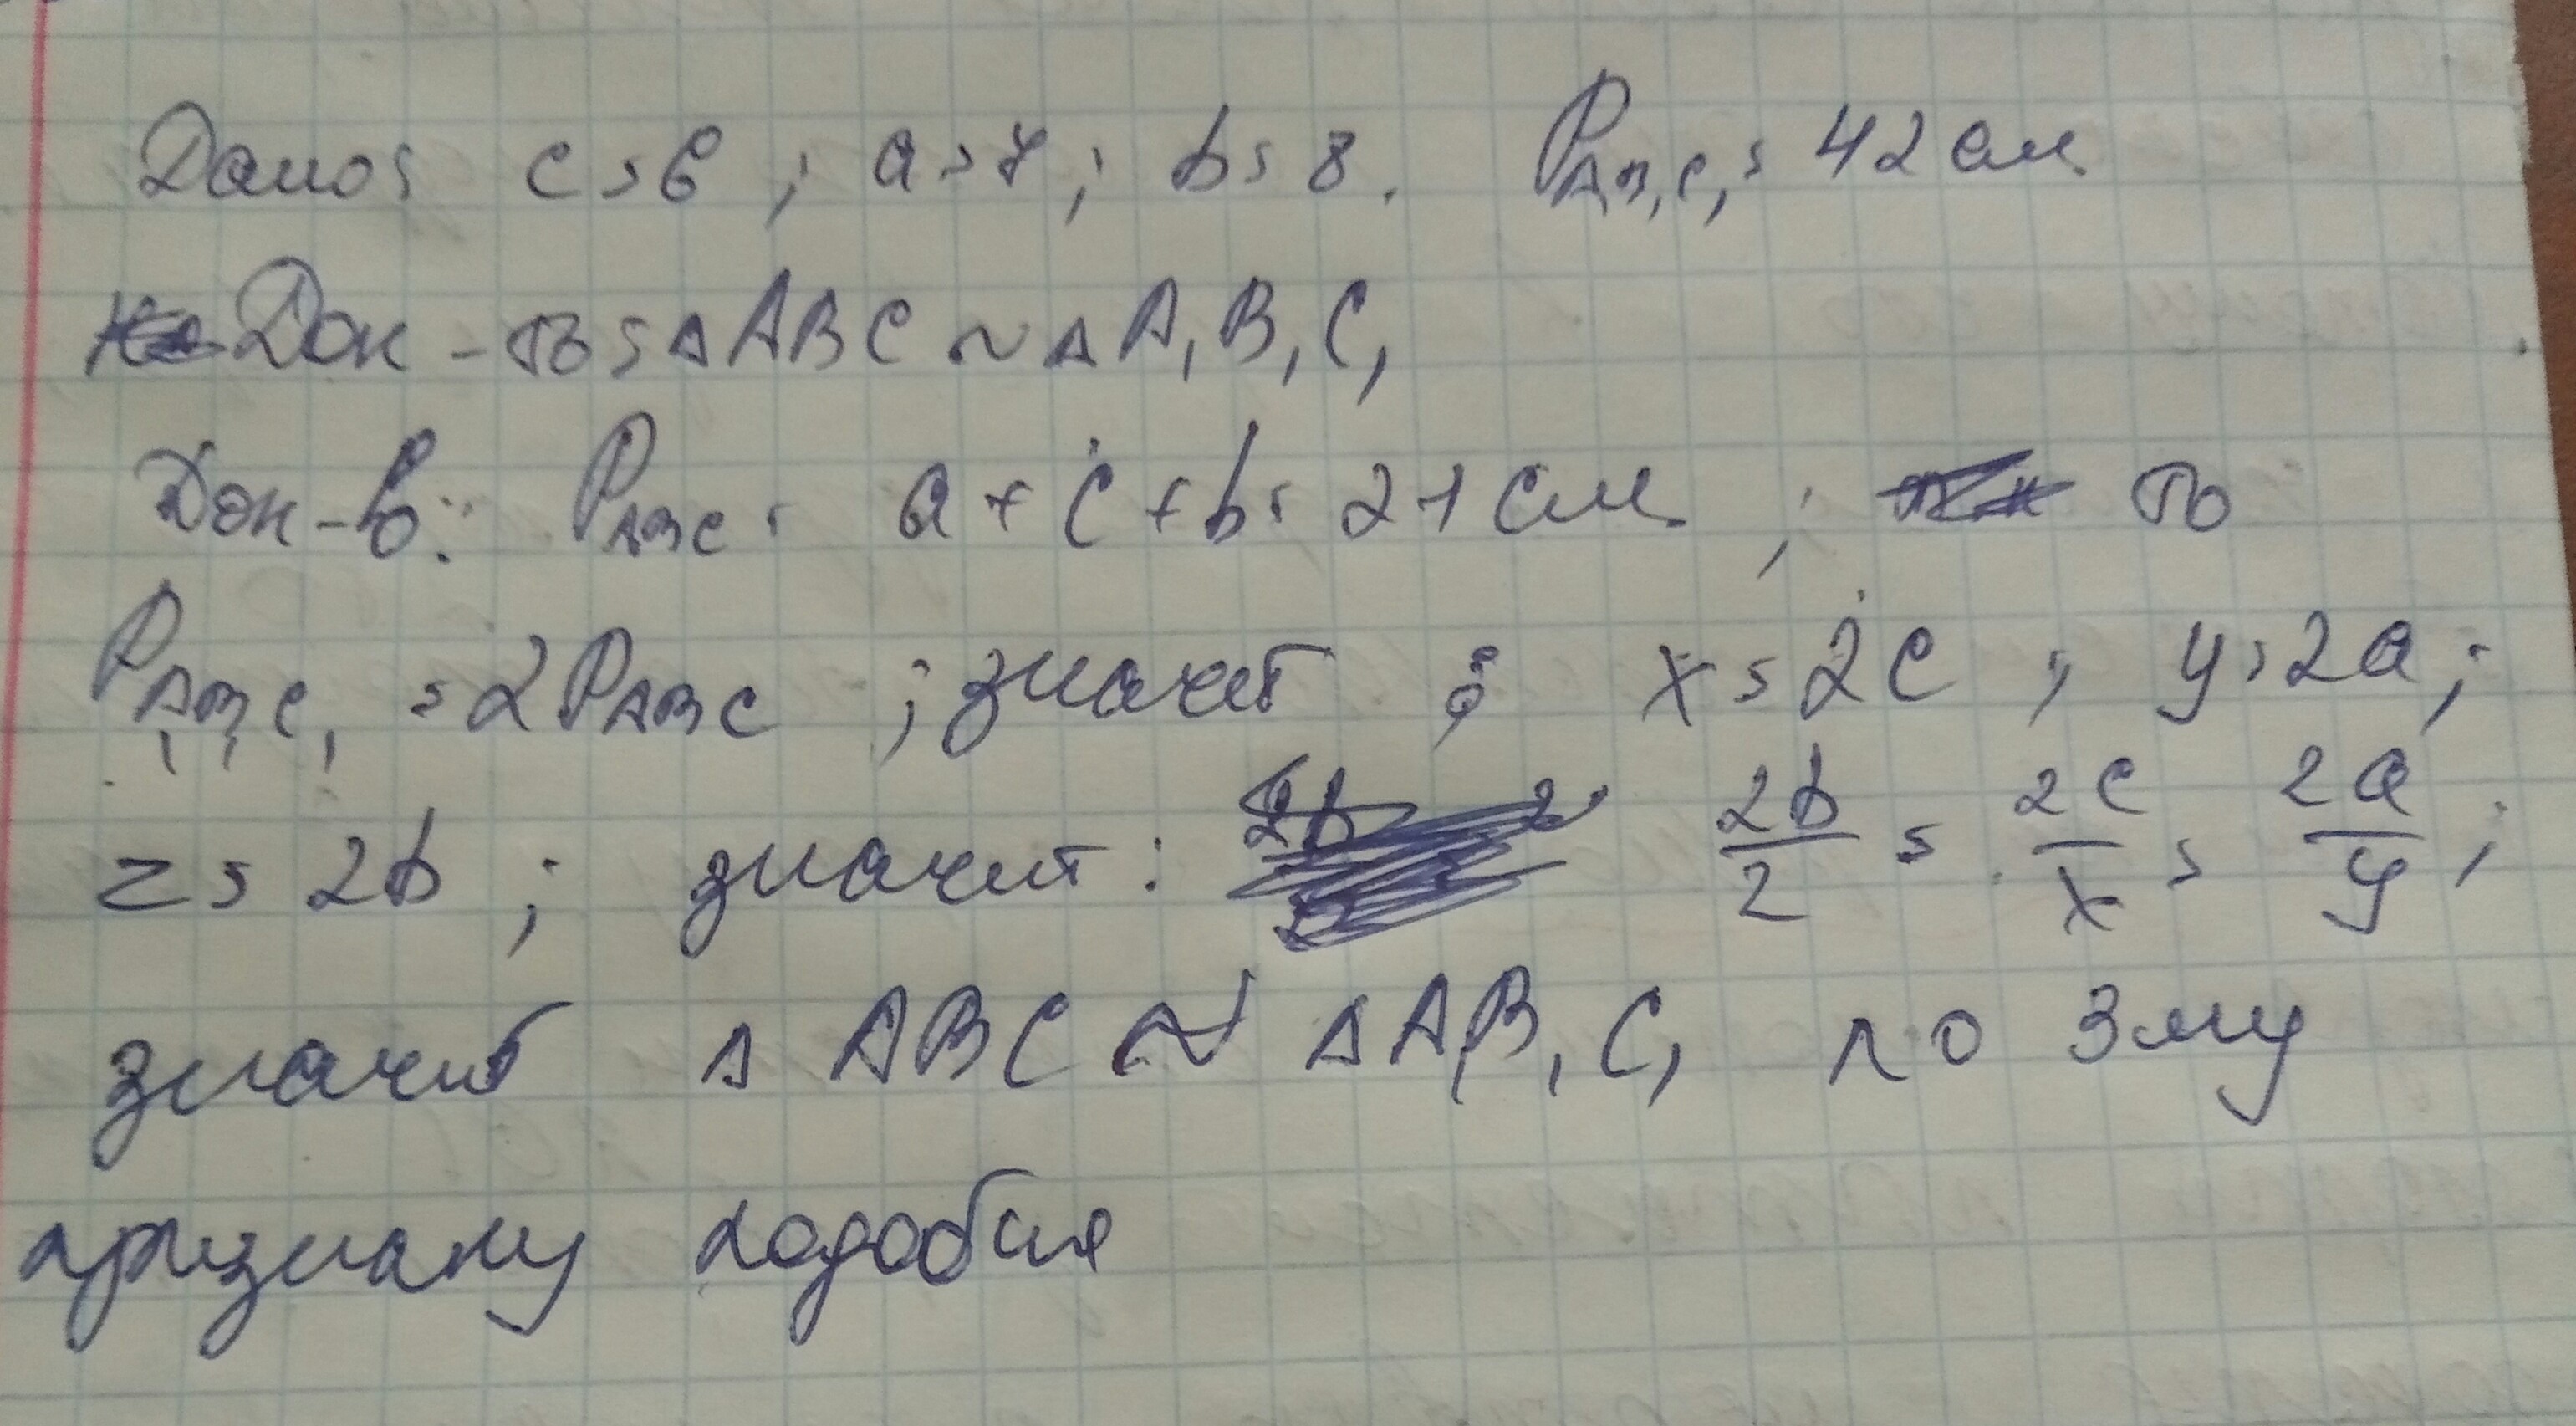 Дано: c = 6 ; a = 7 ; b = 8 . P_A₁B₁C₁ = 42 см
Док-ть: △ABC ~ △A₁B₁C₁
Док-в: P_ABC = a + c + b = 21 см ; то
P_A₁B₁C₁ = 2P_ABC ; значит : x = 2c ; y = 2a ;
z = 2b ; значит : 2b/z = 2c/x = 2a/y ;
значит △ ABC ~ △A₁B₁C₁ по 3му
признаку подобия